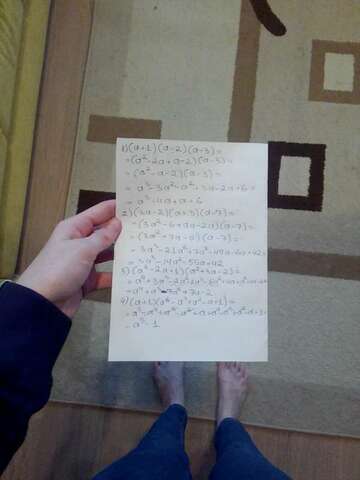 1)(a+1)(a-2)(a-3)=
=(a²-2a+a-2)(a-3)=
=(a²-a-2)(a-3)=
= a³-3a²-a²+3a-2a+6=
= a³-4a+a+6
2)(3a-2)(a+3)(a-7)=
=(3a²-6+9a-2a)(a-7)=
=(3a²+7a-6)(a-7)=
= 3a³-21a²+7a²-49a-6a+42=
= 3a³-14a²-55a+42
3)(a²-2a+1)(a²+3a-2)=
= a⁴+a³-7a²+7a-2
4)(a+1)(a⁴-a³+a²-a+1)=
= a⁵-1